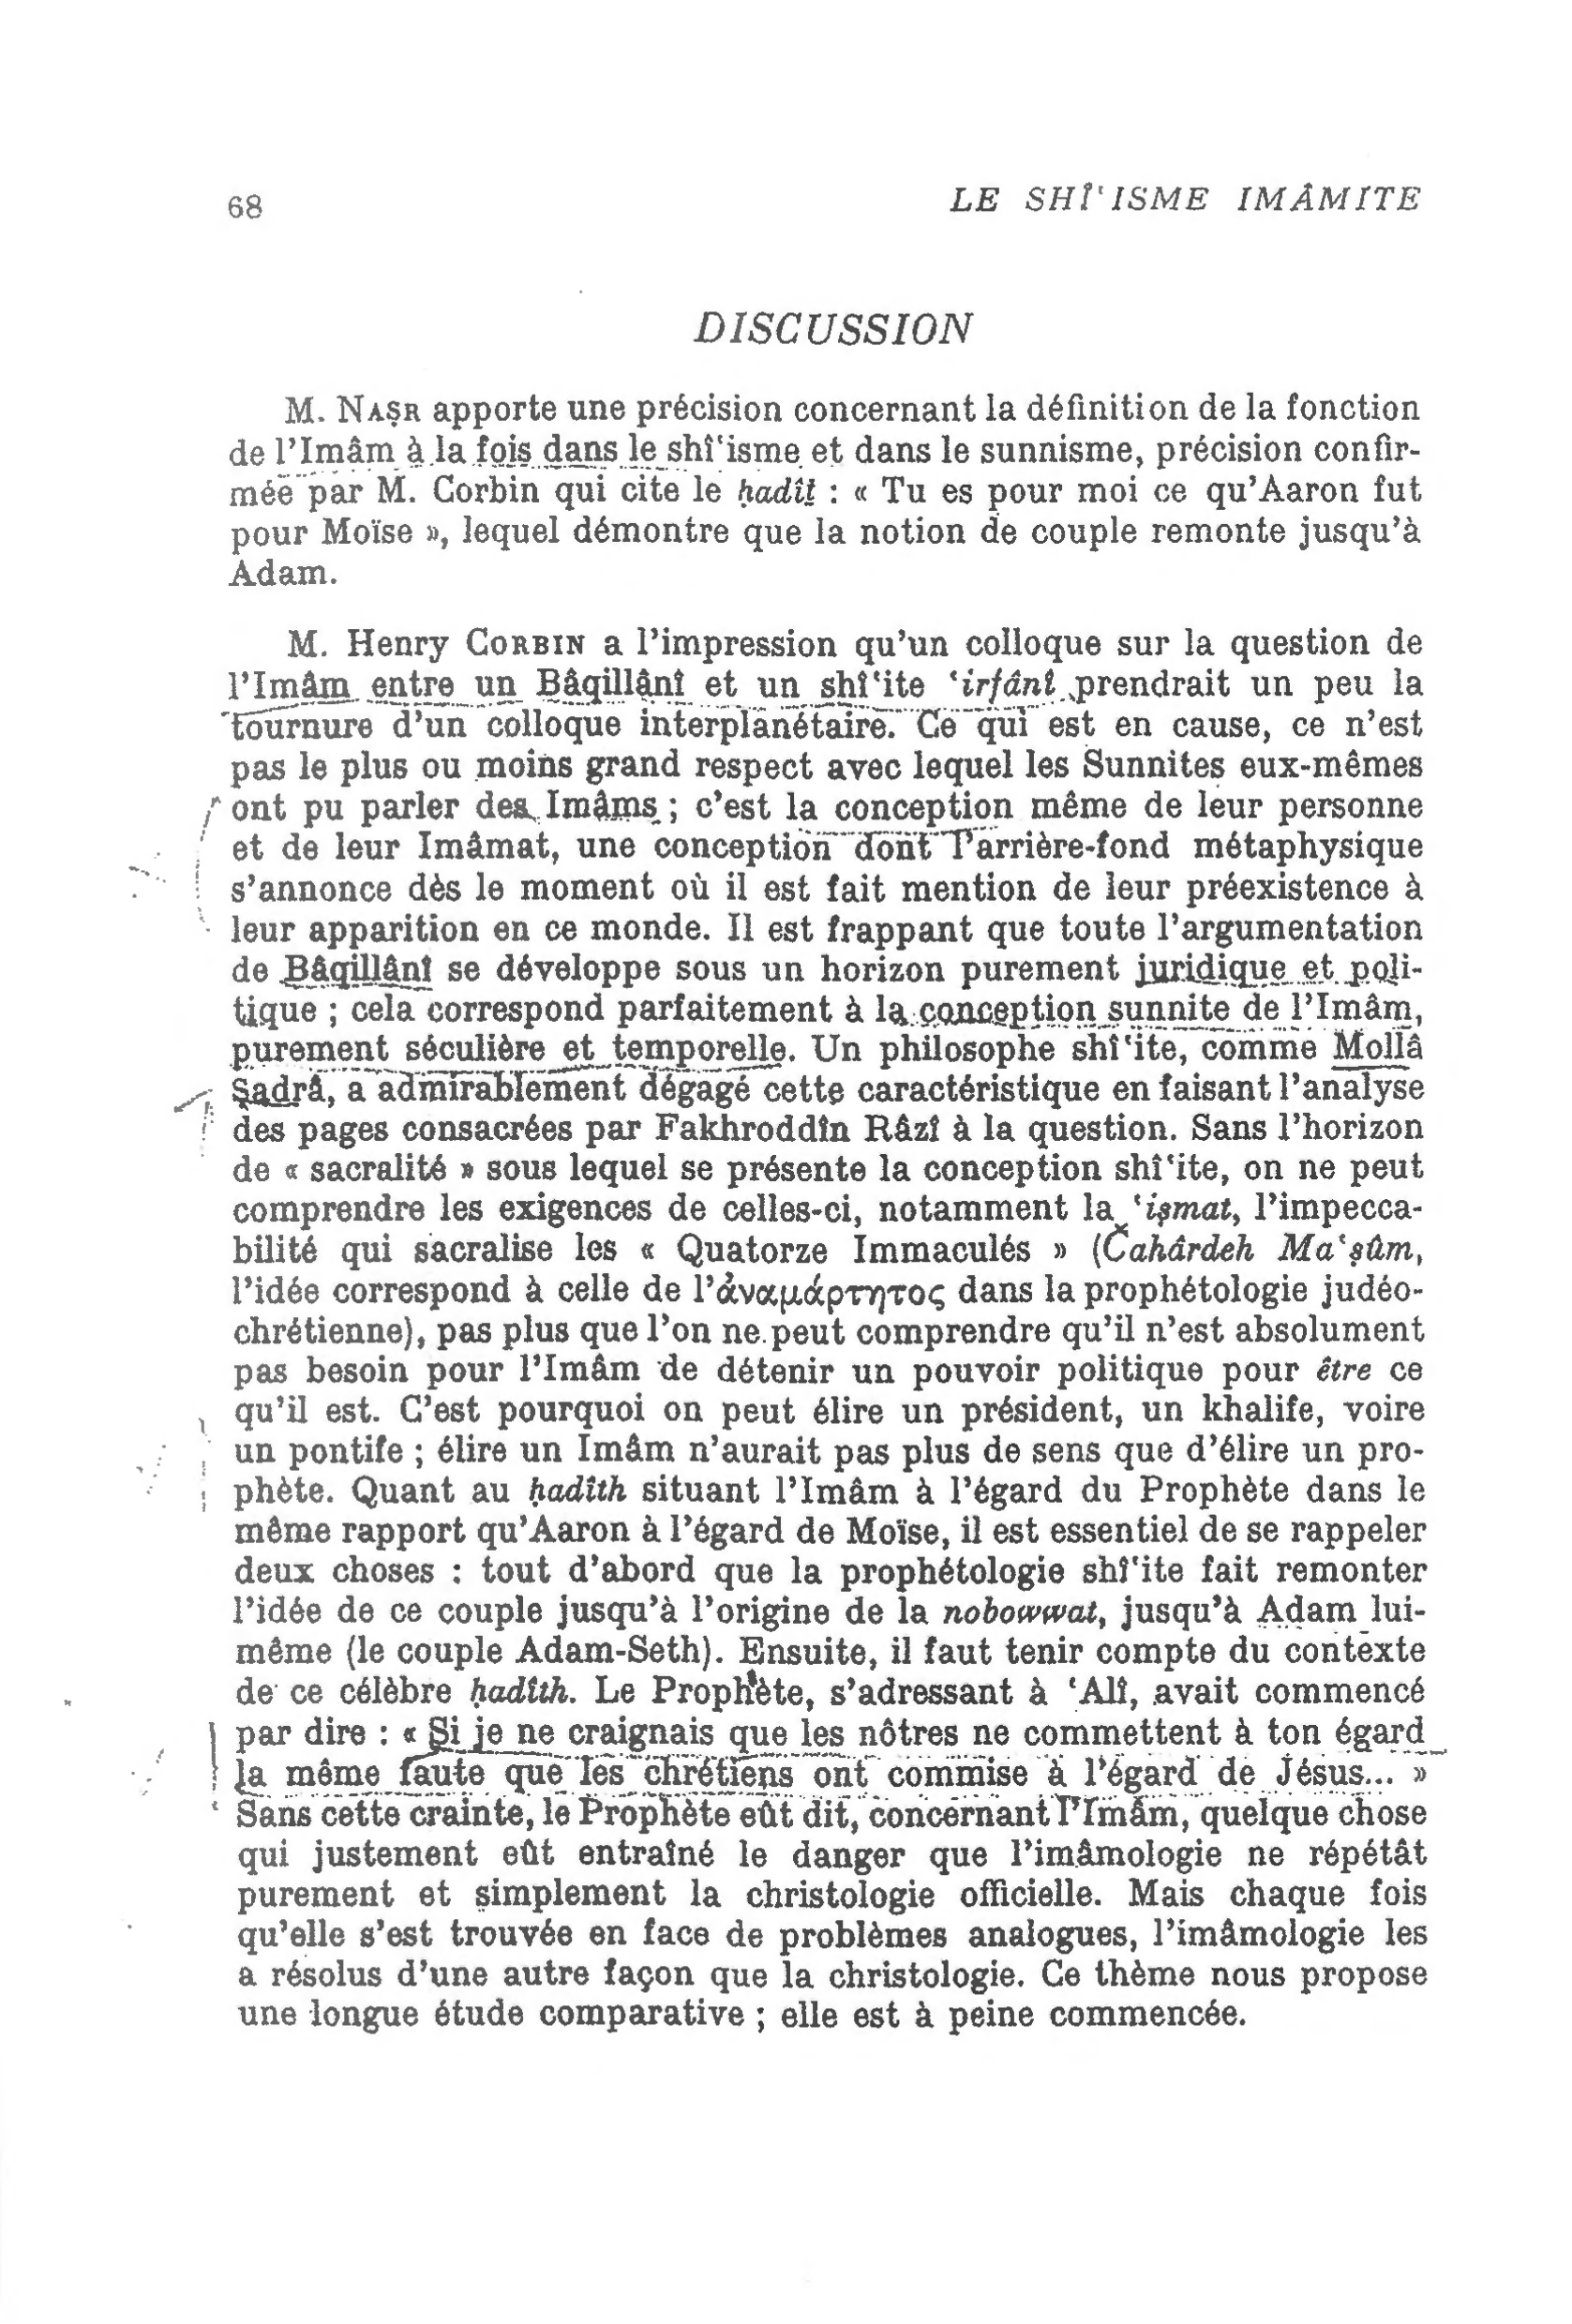 68
LE SHÎ‘ISME IMÂMITE
DISCUSSION
M. NAṢR apporte une précision concernant la définition de la fonction
de l’Imâm à la fois dans le shî‘isme et dans le sunnisme, précision confir-
mée par M. Corbin qui cite le ḥadîṯ : « Tu es pour moi ce qu’Aaron fut
pour Moïse », lequel démontre que la notion de couple remonte jusqu’à
Adam.
M. Henry CORBIN a l’impression qu’un colloque sur la question de
l’Imâm entre un Bâqillânî et un shî‘ite ‘irfânî prendrait un peu la
tournure d’un colloque interplanétaire. Ce qui est en cause, ce n’est
pas le plus ou moins grand respect avec lequel les Sunnites eux-mêmes
ont pu parler des Imâms ; c’est la conception même de leur personne
et de leur Imâmat, une conception dont l’arrière-fond métaphysique
s’annonce dès le moment où il est fait mention de leur préexistence à
leur apparition en ce monde. Il est frappant que toute l’argumentation
de Bâqillânî se développe sous un horizon purement juridique et poli-
tique ; cela correspond parfaitement à la conception sunnite de l’Imâm,
purement séculière et temporelle. Un philosophe shî‘ite, comme Mollâ
Ṣadrâ, a admirablement dégagé cette caractéristique en faisant l’analyse
des pages consacrées par Fakhroddîn Râzî à la question. Sans l’horizon
de « sacralité » sous lequel se présente la conception shî‘ite, on ne peut
comprendre les exigences de celles-ci, notamment la ‘iṣmat, l’impecca-
bilité qui sacralise les « Quatorze Immaculés » (Čahârdeh Ma‘ṣûm,
l’idée correspond à celle de l’ἀναμάρτητος dans la prophétologie judéo-
chrétienne), pas plus que l’on ne peut comprendre qu’il n’est absolument
pas besoin pour l’Imâm de détenir un pouvoir politique pour être ce
qu’il est. C’est pourquoi on peut élire un président, un khalife, voire
un pontife ; élire un Imâm n’aurait pas plus de sens que d’élire un pro-
phète. Quant au ḥadîth situant l’Imâm à l’égard du Prophète dans le
même rapport qu’Aaron à l’égard de Moïse, il est essentiel de se rappeler
deux choses : tout d’abord que la prophétologie shî‘ite fait remonter
l’idée de ce couple jusqu’à l’origine de la nobowwat, jusqu’à Adam lui-
même (le couple Adam-Seth). Ensuite, il faut tenir compte du contexte
de ce célèbre ḥadîth. Le Prophète, s’adressant à ‘Alî, avait commencé
par dire : « Si je ne craignais que les nôtres ne commettent à ton égard
la même faute que les chrétiens ont commise à l’égard de Jésus... »
Sans cette crainte, le Prophète eût dit, concernant l’Imâm, quelque chose
qui justement eût entraîné le danger que l’imâmologie ne répétât
purement et simplement la christologie officielle. Mais chaque fois
qu’elle s’est trouvée en face de problèmes analogues, l’imâmologie les
a résolus d’une autre façon que la christologie. Ce thème nous propose
une longue étude comparative ; elle est à peine commencée.